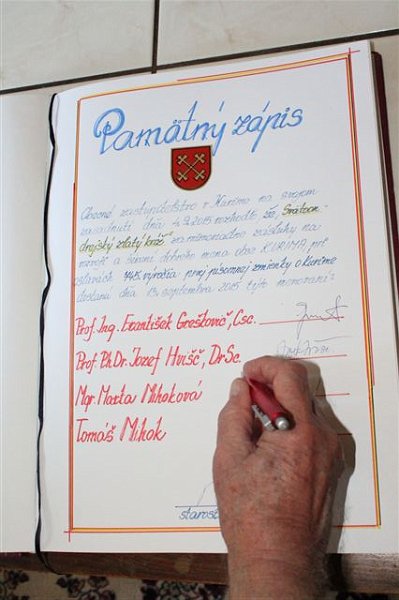 Pamätný zápis
Obecné zastupiteľstvo v Kurime na svojom
zasadnutí dňa 4.9.2015 rozhodlo, že
zlatý kríž za mimoriadne zásluhy na
rozvoji a šírení dobrého mena obce KURIMA, pri
oslavách výročia prvej písomnej zmienky o Kurime
dostanú dňa 13. septembra 2015 títo menovaní:
Prof. Ing. František Greškovič, Csc.
Prof. PhDr. Jozef Hvišč, DrSc.
Mgr. Marta Mihoková
Tomáš Mihok
staros